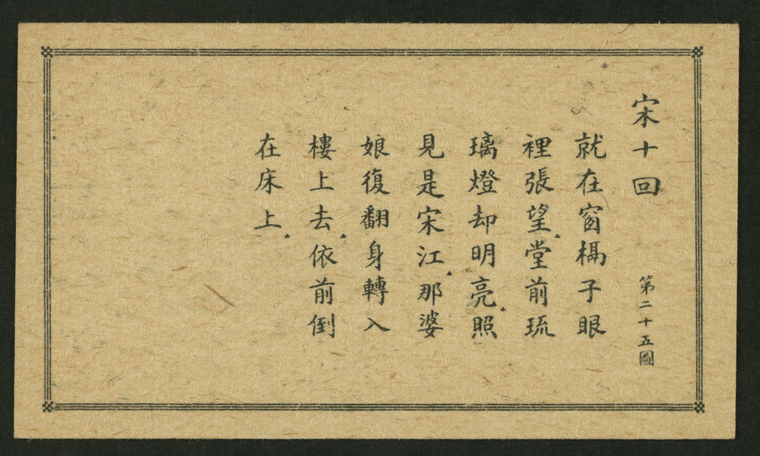 宋十回
第二十五圖
就在窗槅子眼
裡張望.堂前琉
璃燈却明亮.照
見是宋江.那婆
娘復翻身轉入
樓上去.依前倒
在床上.